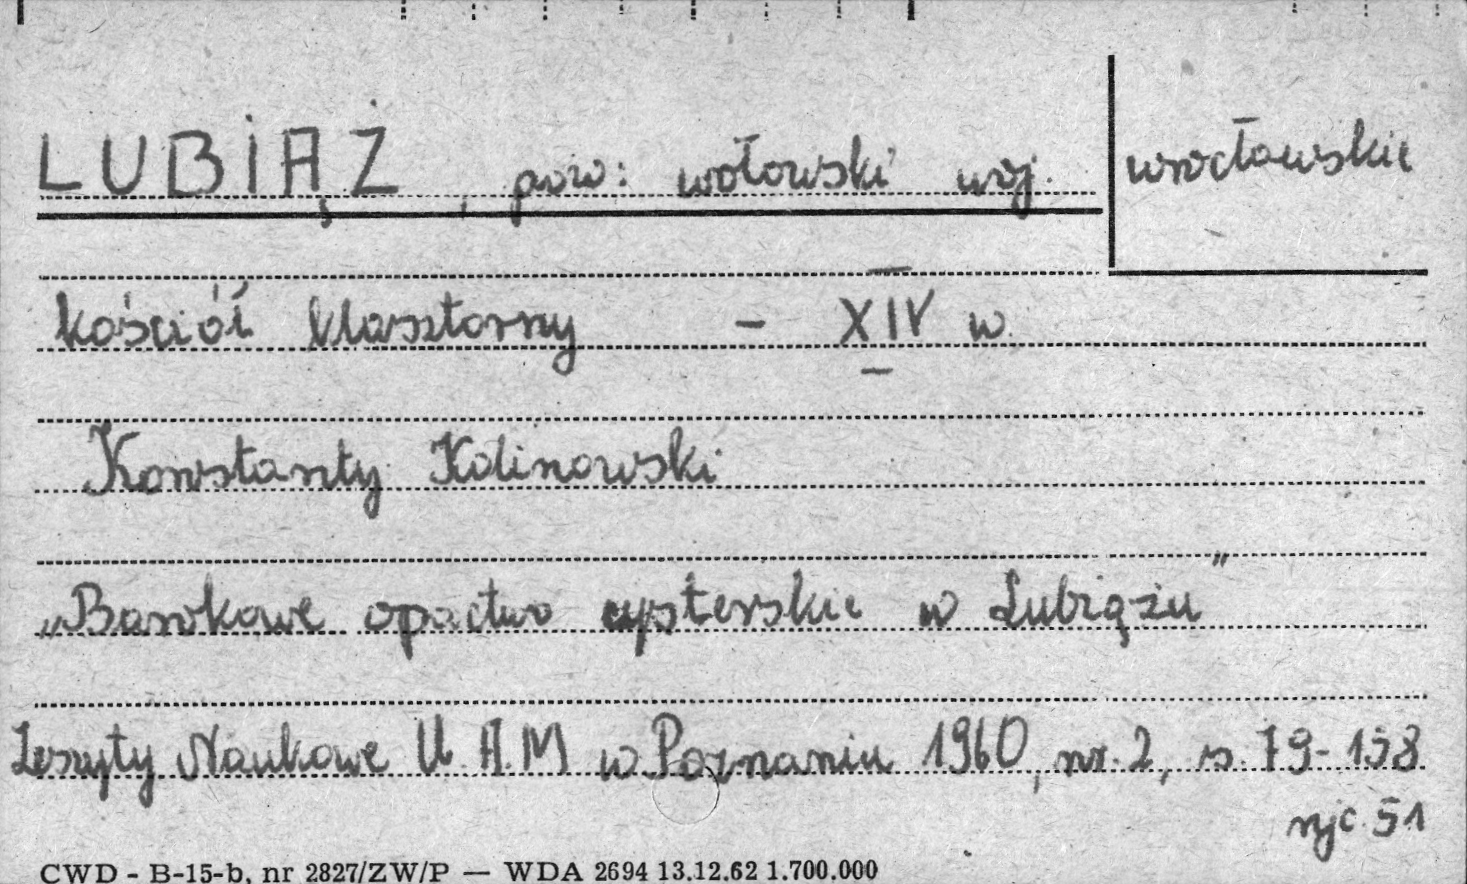 LUBIĄŻ, pow: wołowski woj. wrocławskie
kościół klasztorny - XIV w.
Konstanty Kalinowski
„Barokowe opactwo cysterskie w Lubiążu”
Zeszyty Naukowe U.A.M w Poznaniu 1960, nr. 2, s. 79-158
ryc. 51
CWD - B-15-b, nr 2827/ZW/P — WDA 2694 13.12.62 1.700.000